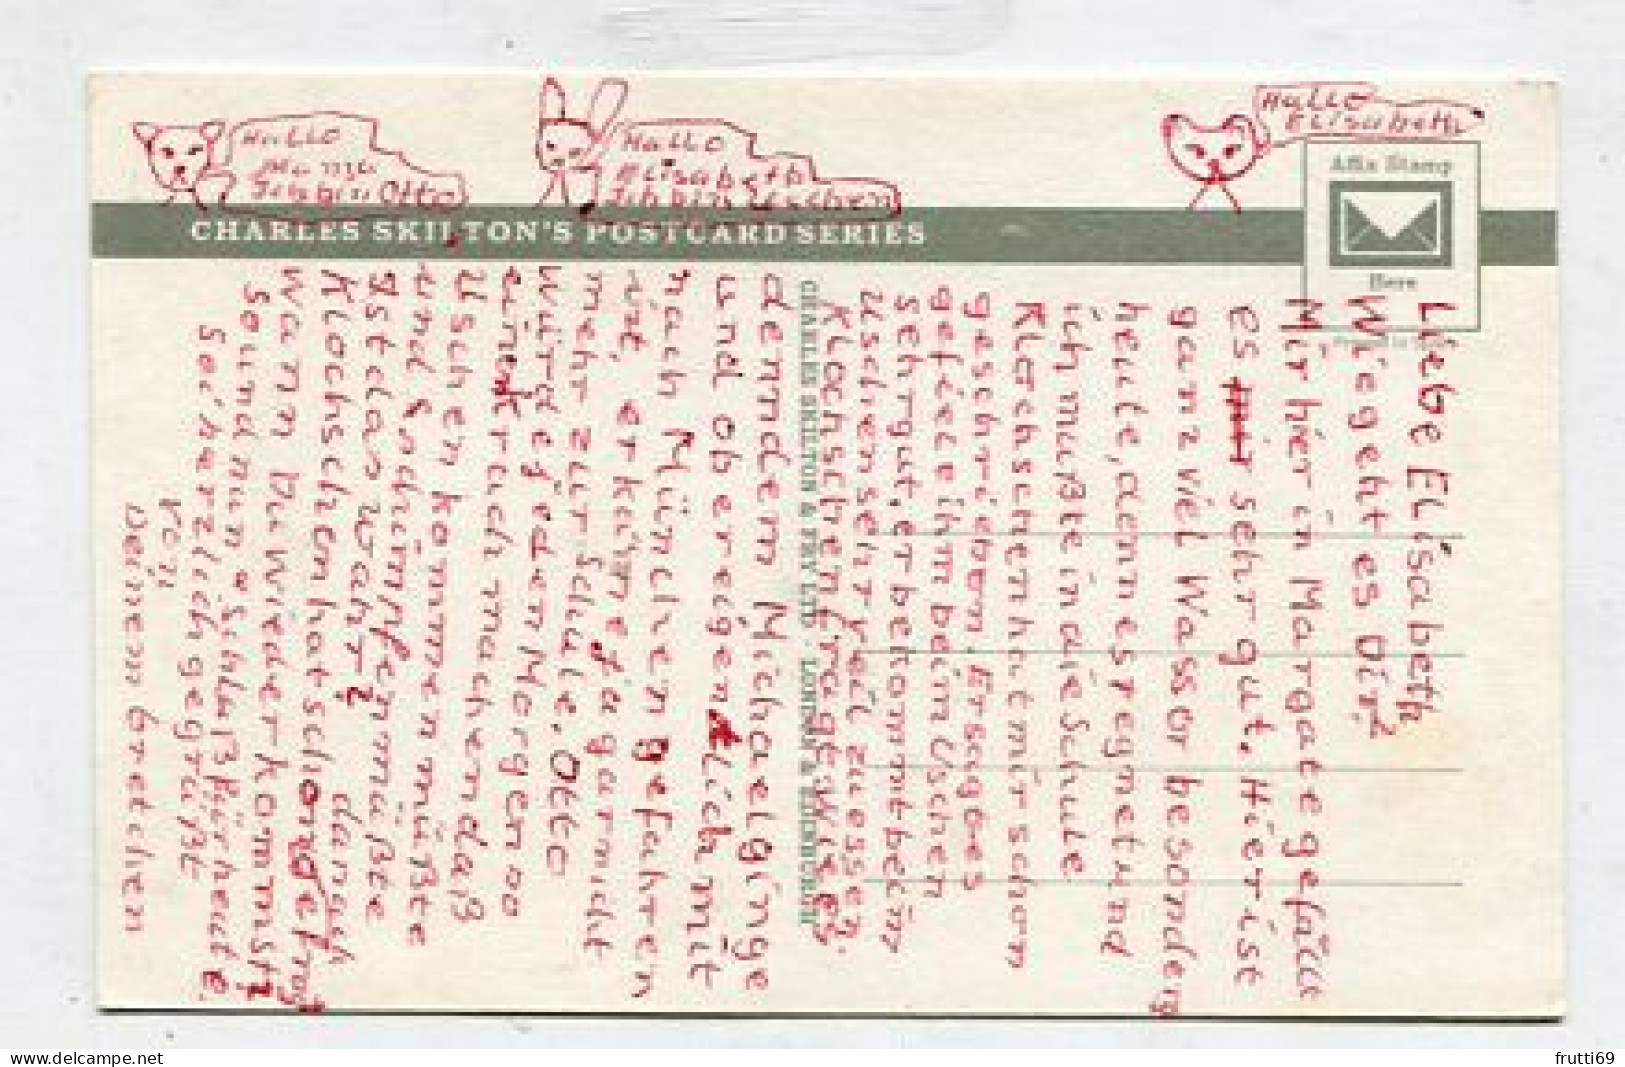 Hallo
Mama
Ich bin Otto
Hallo
Elisabeth
Ich bin
Hallo
Elisabeth
Affix Stamp
Here
CHARLES SKILTON'S POSTCARD SERIES
CHARLES SKILTON & FRY LTD · LONDON & EDINBURGH
Liebe Elisabeth
Wie geht es Dir?
Mir hier in Margate gefällt
es sehr gut. Hier ist
ganz viel Wasser besonders
heute, denn es regnet und
ich mußte in die Schule
Klochschen hat mir schon
geschrieben. Er sagt es
gefiele ihm beim Uschen
sehr gut, er bekommt beim
Uschen sehr viel zu essen.
Klochschen fragt wie es
denn dem Michael ginge
und ob er eigentlich mit
nach München gefahren
ist, er käme ja gar nicht
mehr zur Schule. Otto
würde jeden Morgen so
einen Krach machen daß
Uschen kommen müßte
und schimpfen müßte
Ist das wahr?
Klochschen hat schon gefragt
wann Du wieder kommst
So und nun Schluß für heute.
Sei herzlich gegrüßt
von
Deinem Gretchen
danach
frutti69